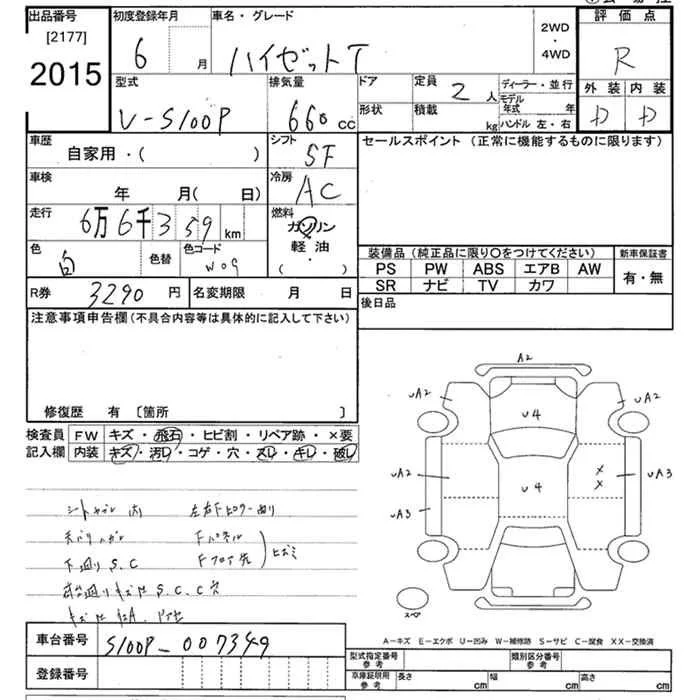 出品番号
[2177]
2015
初度登録年月
6 月
車名・グレード
ハイゼットT
2WD
・
4WD
評価点
R
外装 内装
D D
型式
V-S100P
排気量
660 cc
ドア
形状
定員
2 人
積載
kg
ディーラー・並行
モデル年式 年
ハンドル 左・右
車歴
自家用・( )
シフト
SF
セールスポイント (正常に機能するものに限ります)
車検
年 月( 日)
冷房
AC
走行
6万6千359 km
燃料
ガソリン
軽油
( )
色
白
色替
色コード
W09
装備品(純正品に限り〇をつけてください)
新車保証書
PS PW ABS エアB AW
SR ナビ TV カワ
有・無
R券 3290 円
名変期限 月 日
後日品
注意事項申告欄(不具合内容等は具体的に記入して下さい)
修復歴 有 〔箇所 〕
検査員
記入欄
FW キズ・飛石・ヒビ割・リペア跡・×要
内装 キズ・汚レ・コゲ・穴・スレ・キレ・破レ
下廻りS.C
Fパネル
A2
UA2
UA2
U4
UA2
UA3
U4
UA3
××
スペア
A-キズ E-エクボ U-凹み W-補修跡 S-サビ C-腐食 XX-交換済
車台番号
S100P-007349
登録番号
型式指定番号
参考
類別区分番号
参考
車庫証明用
参考
長さ cm
幅 cm
高さ cm